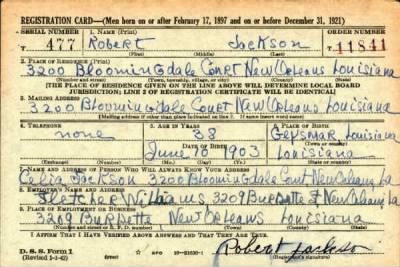 REGISTRATION CARD—(Men born on or after February 17, 1897 and on or before December 31, 1921)
SERIAL NUMBER 1. NAME (Print) ORDER NUMBER
T 477 Robert Jackson T 11841
(First) (Middle) (Last)
2. PLACE OF RESIDENCE (Print)
3200 Bloomingdale Court New Orleans Louisiana
(Number and street) (Town, township, village, or city) (County) (State)
[THE PLACE OF RESIDENCE GIVEN ON THE LINE ABOVE WILL DETERMINE LOCAL BOARD
JURISDICTION; LINE 2 OF REGISTRATION CERTIFICATE WILL BE IDENTICAL]
3. MAILING ADDRESS
3200 Bloomingdale Court New Orleans Louisiana
[Mailing address if other than place indicated on line 2. If same insert word same]
4. TELEPHONE 5. AGE IN YEARS 6. PLACE OF BIRTH
none 38 Geismar, Louisiana
DATE OF BIRTH (Town or county)
June 10 1903 Louisiana
(Exchange) (Number) (Mo.) (Day) (Yr.) (State or country)
7. NAME AND ADDRESS OF PERSON WHO WILL ALWAYS KNOW YOUR ADDRESS
Celia Jackson 3200 Bloomingdale Court New Orleans La
8. EMPLOYER'S NAME AND ADDRESS
Fletcher Williams 3209 Burdette St New Orleans La
9. PLACE OF EMPLOYMENT OR BUSINESS
3209 Burdette New Orleans Louisiana
(Number and street or R. F. D. number) (Town) (County) (State)
I AFFIRM THAT I HAVE VERIFIED ABOVE ANSWERS AND THAT THEY ARE TRUE.
D. S. S. Form 1
(Revised 1-1-42) GPO 16-21630-1 Robert Jackson
(Registrant's signature)